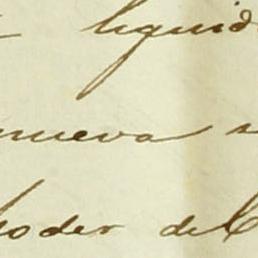 liquid
nueva
poder del